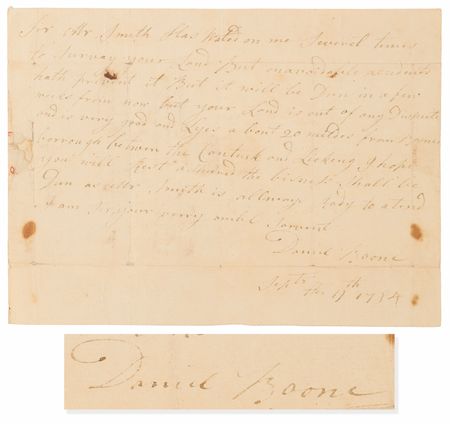 Sir Mr Smith Has Wated on me Severel times
to Survay your Land But unavoidable accidents
hath prevent it But it will be Dun in a few
weeks from now but your Land is out of any Dispute
and is very good and Lyes a bout 20 miles from
borrough between the Cantuck and Licking I hope
you will Rest the bisness Shall be
Dun as Mr Smith is allways Redy to atend
I am Sir your verry ombel Sarvent
Daniel Boone
Septr the 11th 1784
Daniel Boone